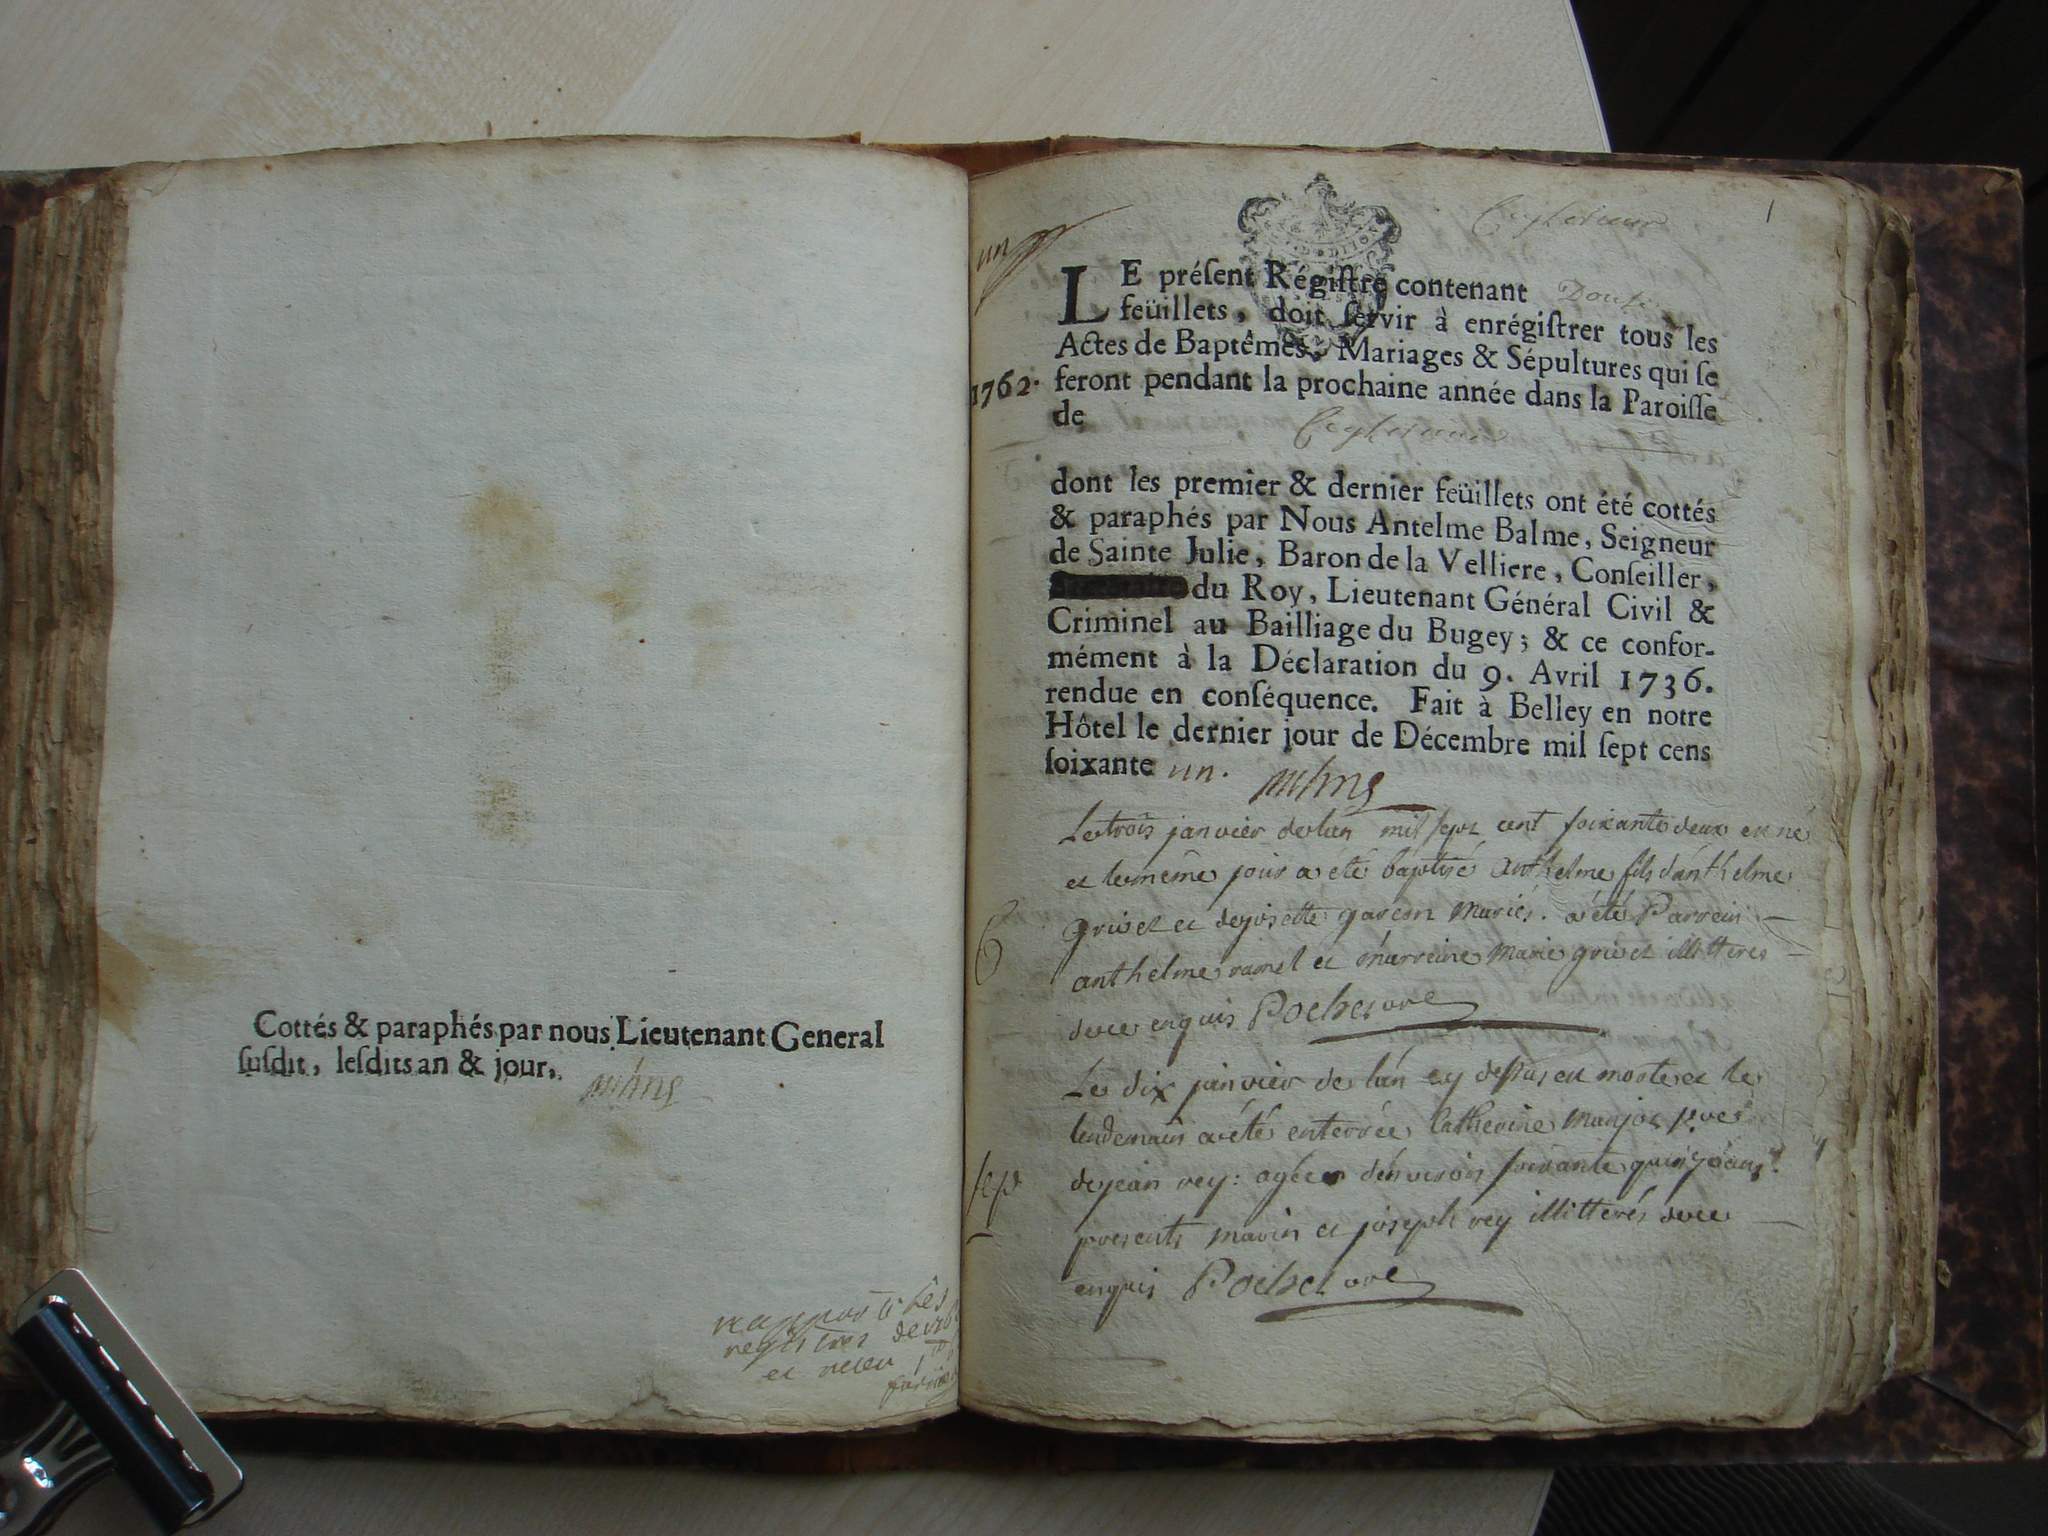 Cottés & paraphés par nous Lieutenant General
ſuſdit, leſdits an & jour.
registres de
et
un
1
LE préſent Régiſtre contenant
feüillets, doit ſervir à enrégiſtrer tous les
Actes de Baptêmes, Mariages & Sépultures qui ſe
1762. feront pendant la prochaine année dans la Paroiſſe
de
dont les premier & dernier feüillets ont été cottés
& paraphés par Nous Antelme Balme, Seigneur
de Sainte Julie, Baron de la Velliere, Conſeiller,
du Roy, Lieutenant Général Civil &
Criminel au Bailliage du Bugey; & ce confor-
mément à la Déclaration du 9. Avril 1736.
rendue en conſéquence. Fait à Belley en notre
Hôtel le dernier jour de Décembre mil ſept cens
ſoixante un.
Le trois janvier de lan mil sept cent soixante deux est né
et le même jour a été baptisé anthelme fils d'anthelme
grivet et de josette garcon mariés. a été Parrein
B
anthelme ramel et marreine marie grivet illitteres
de ce enquis Pochet
Le dix janvier de lan cy dessus est morte et le
lendemain a été enterrée Catherine manjot
sep
de jean rey: agée d'environ soixante quinze ans.
presents marin et joseph rey illitterés de ce
enquis Pochet